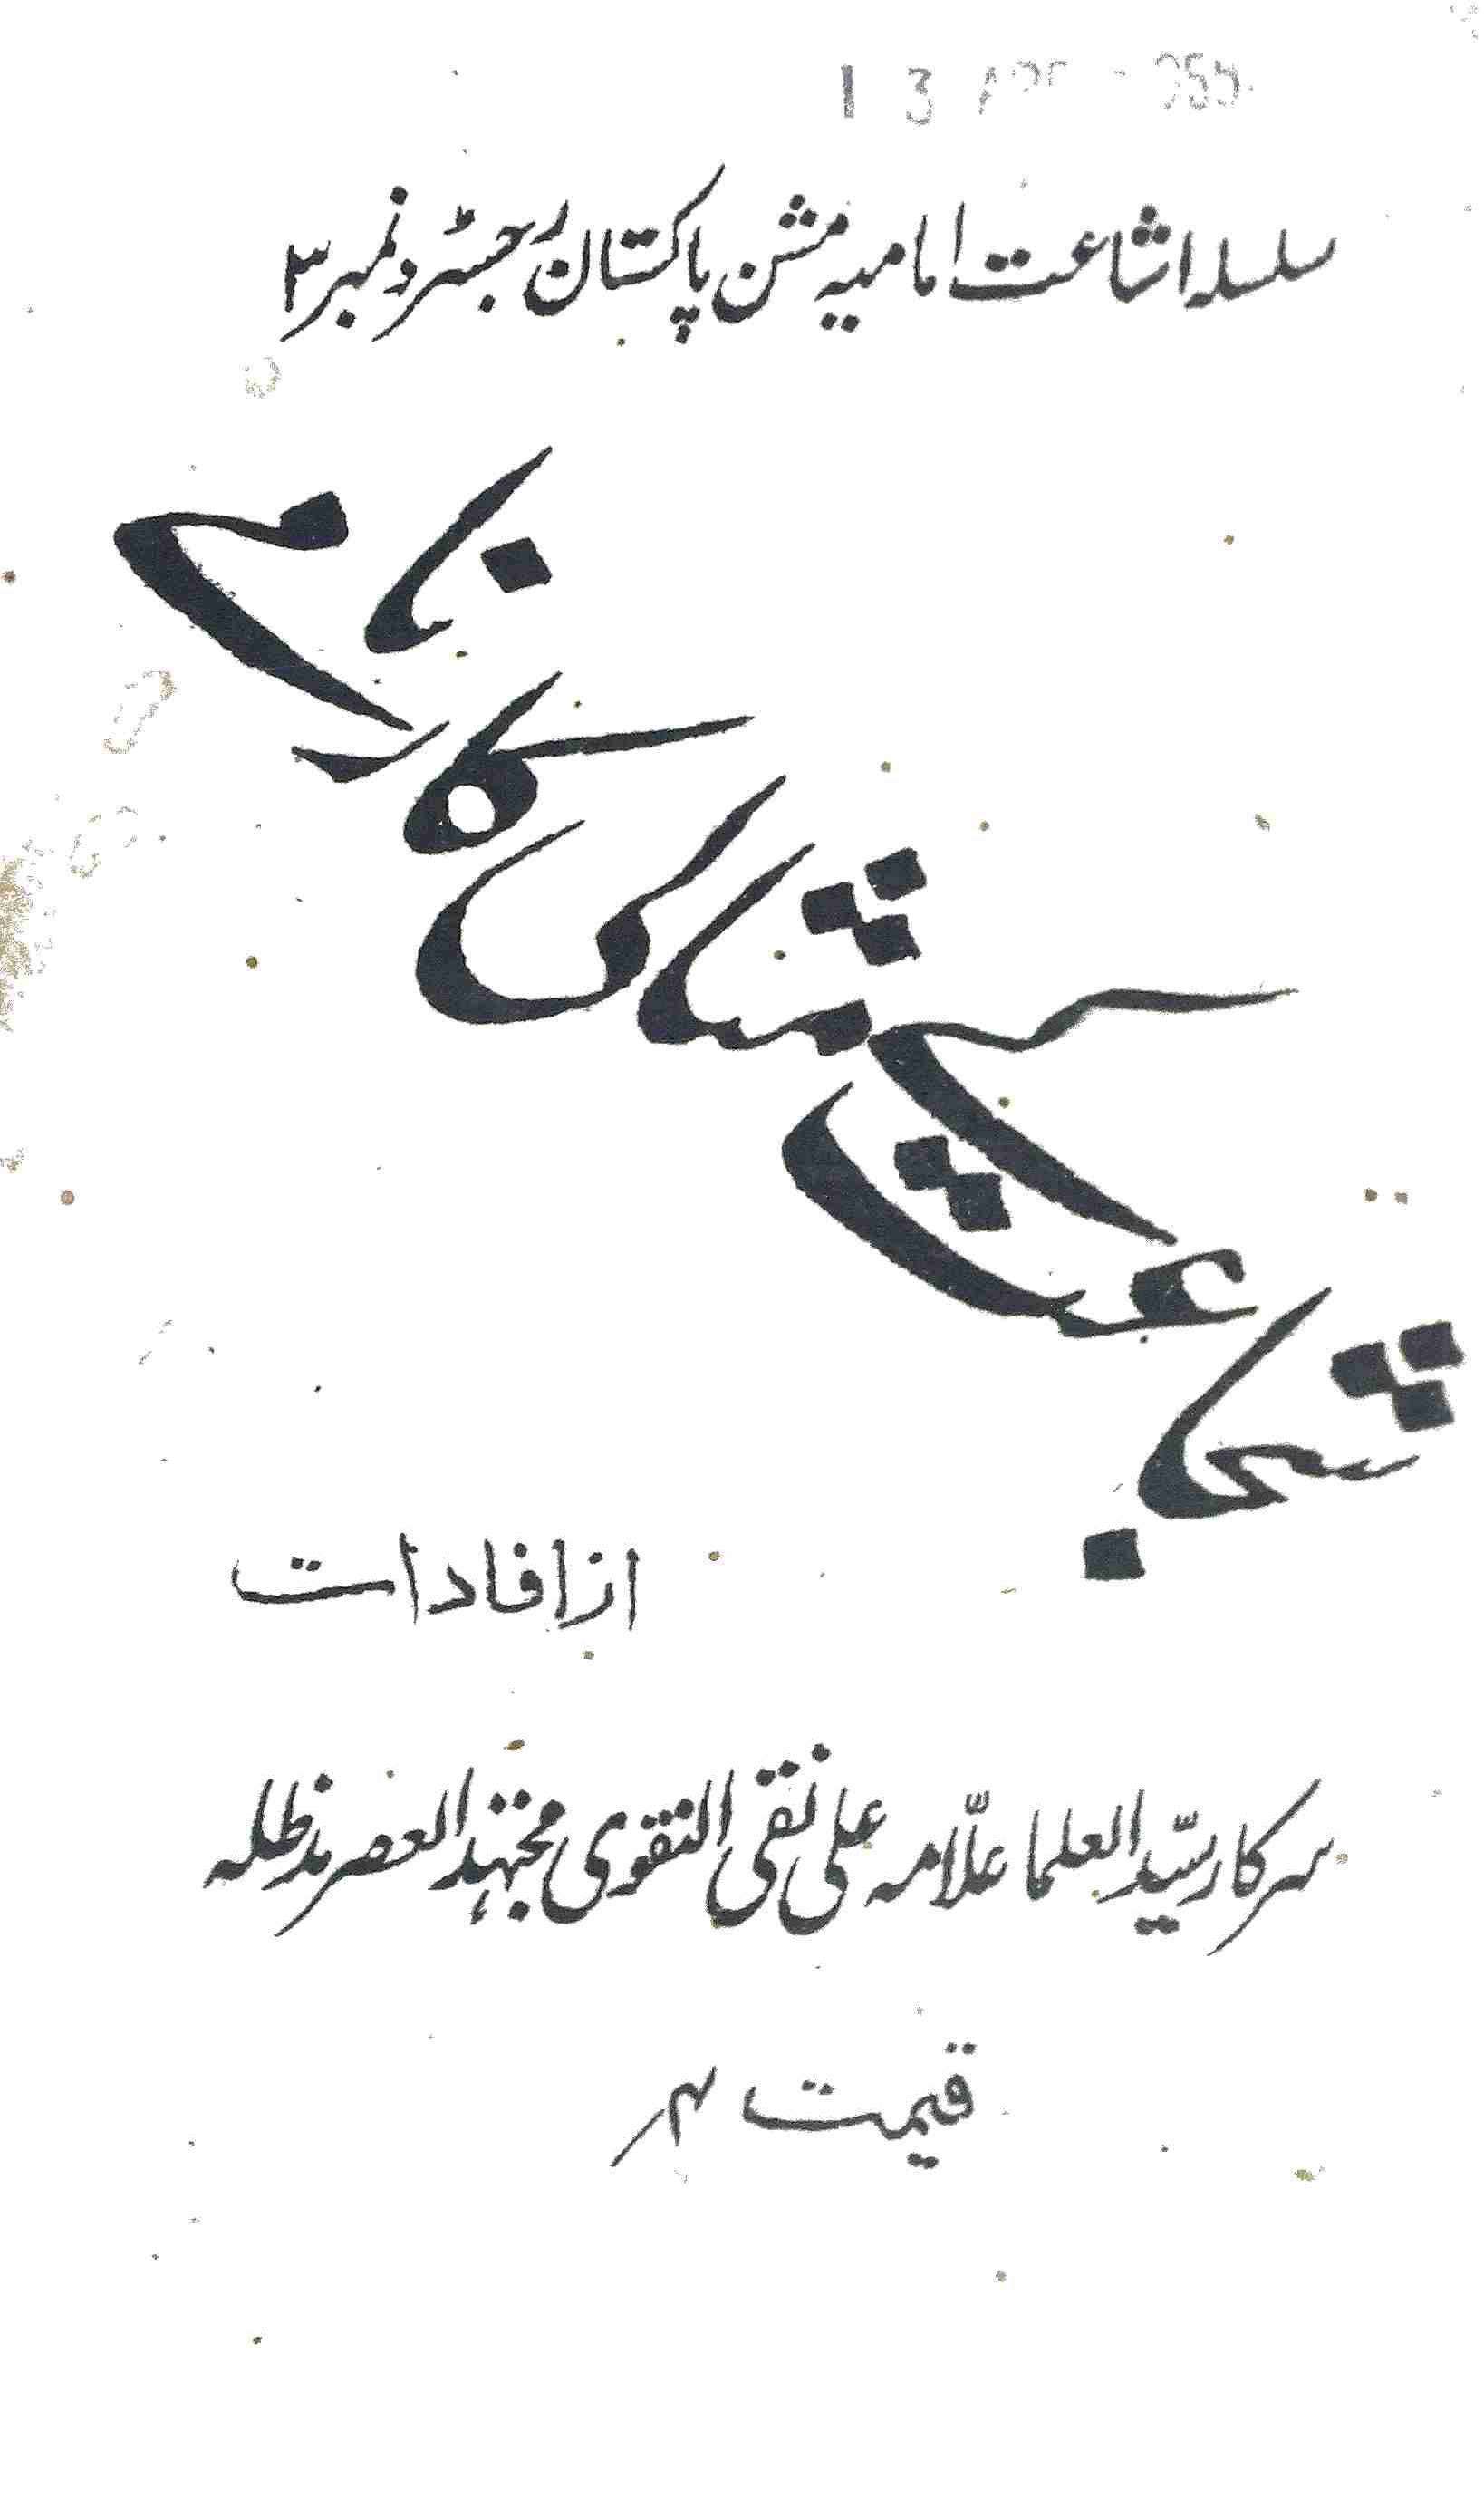 13 APR 1955
سلسلہ اشاعت امامیہ مشن پاکستان رجسٹرڈ نمبر ۳
شجاعت کے مثالی کارنامے
از افادات
سرکار سیّد العلما علّامہ علی نقی النقوی مجتہد العصر مدظلہ
قیمت ۴؍